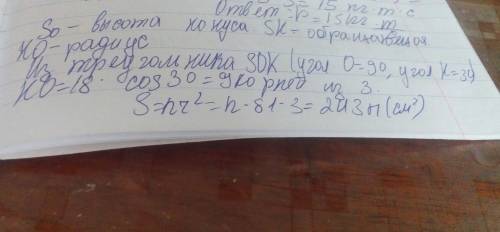 Ответ p = 15 кг · м
SO - высота конуса SK - образающая
KO - радиус
Из треугольника SOK (угол O=90, угол K=30)
KO=18 · cos 30 = 9 корней из 3.
S=πr²=π·81·3=243π(см²)